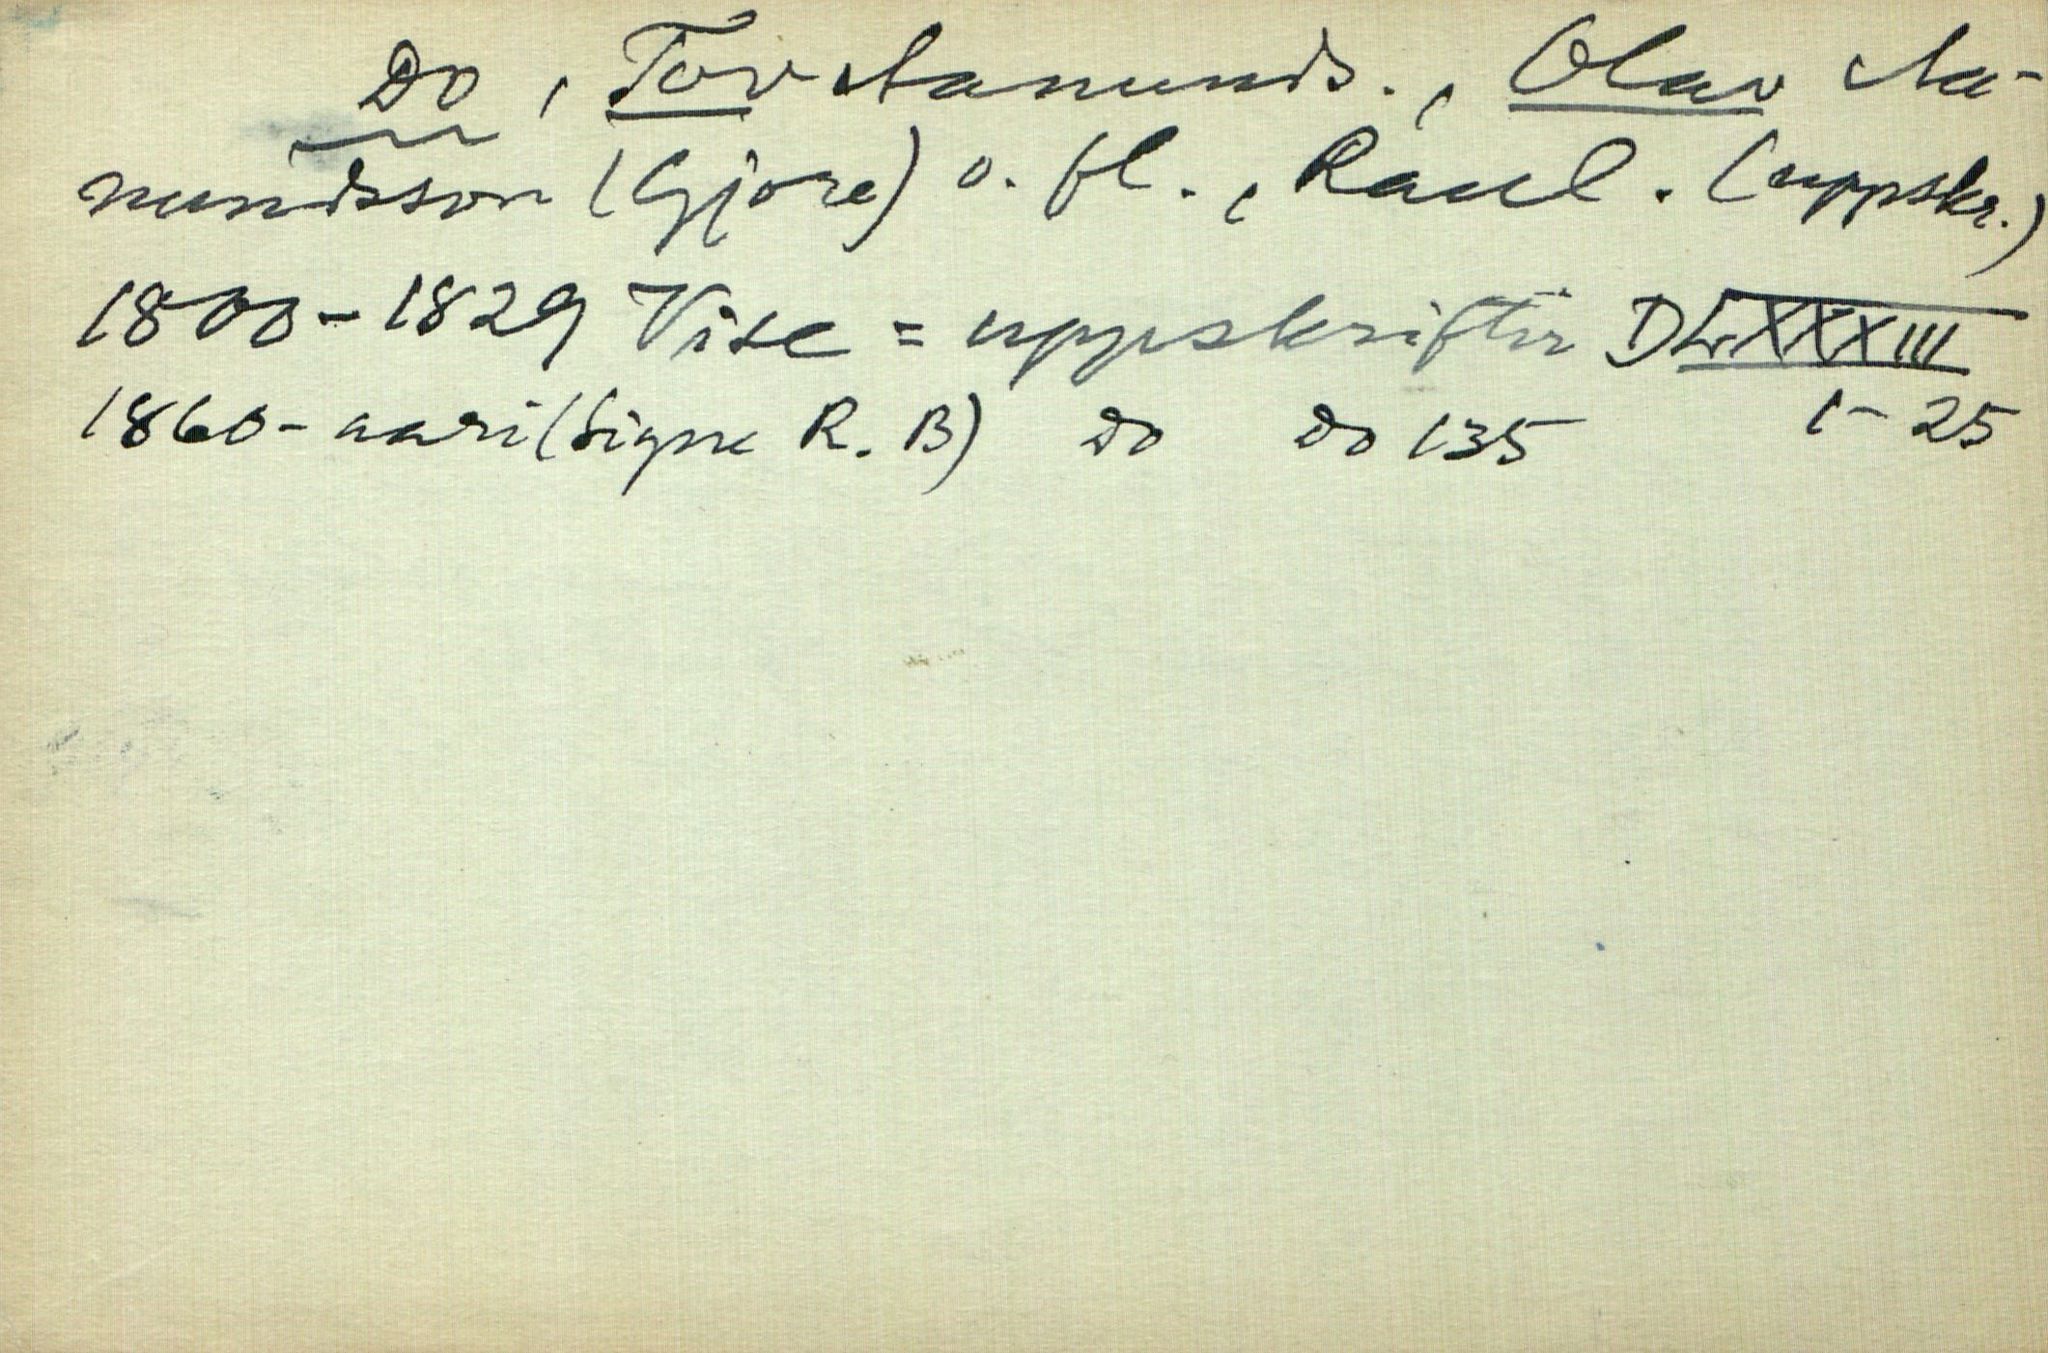 Do, Tov Aamunds., Olav Aa-
mundsson (Gjore) o. fl., Raul. (uppskr.)
1800-1829 Vise = uppskrifter DLXXXIII
1-25
1860-aari (Signe R. B) Do Do 135